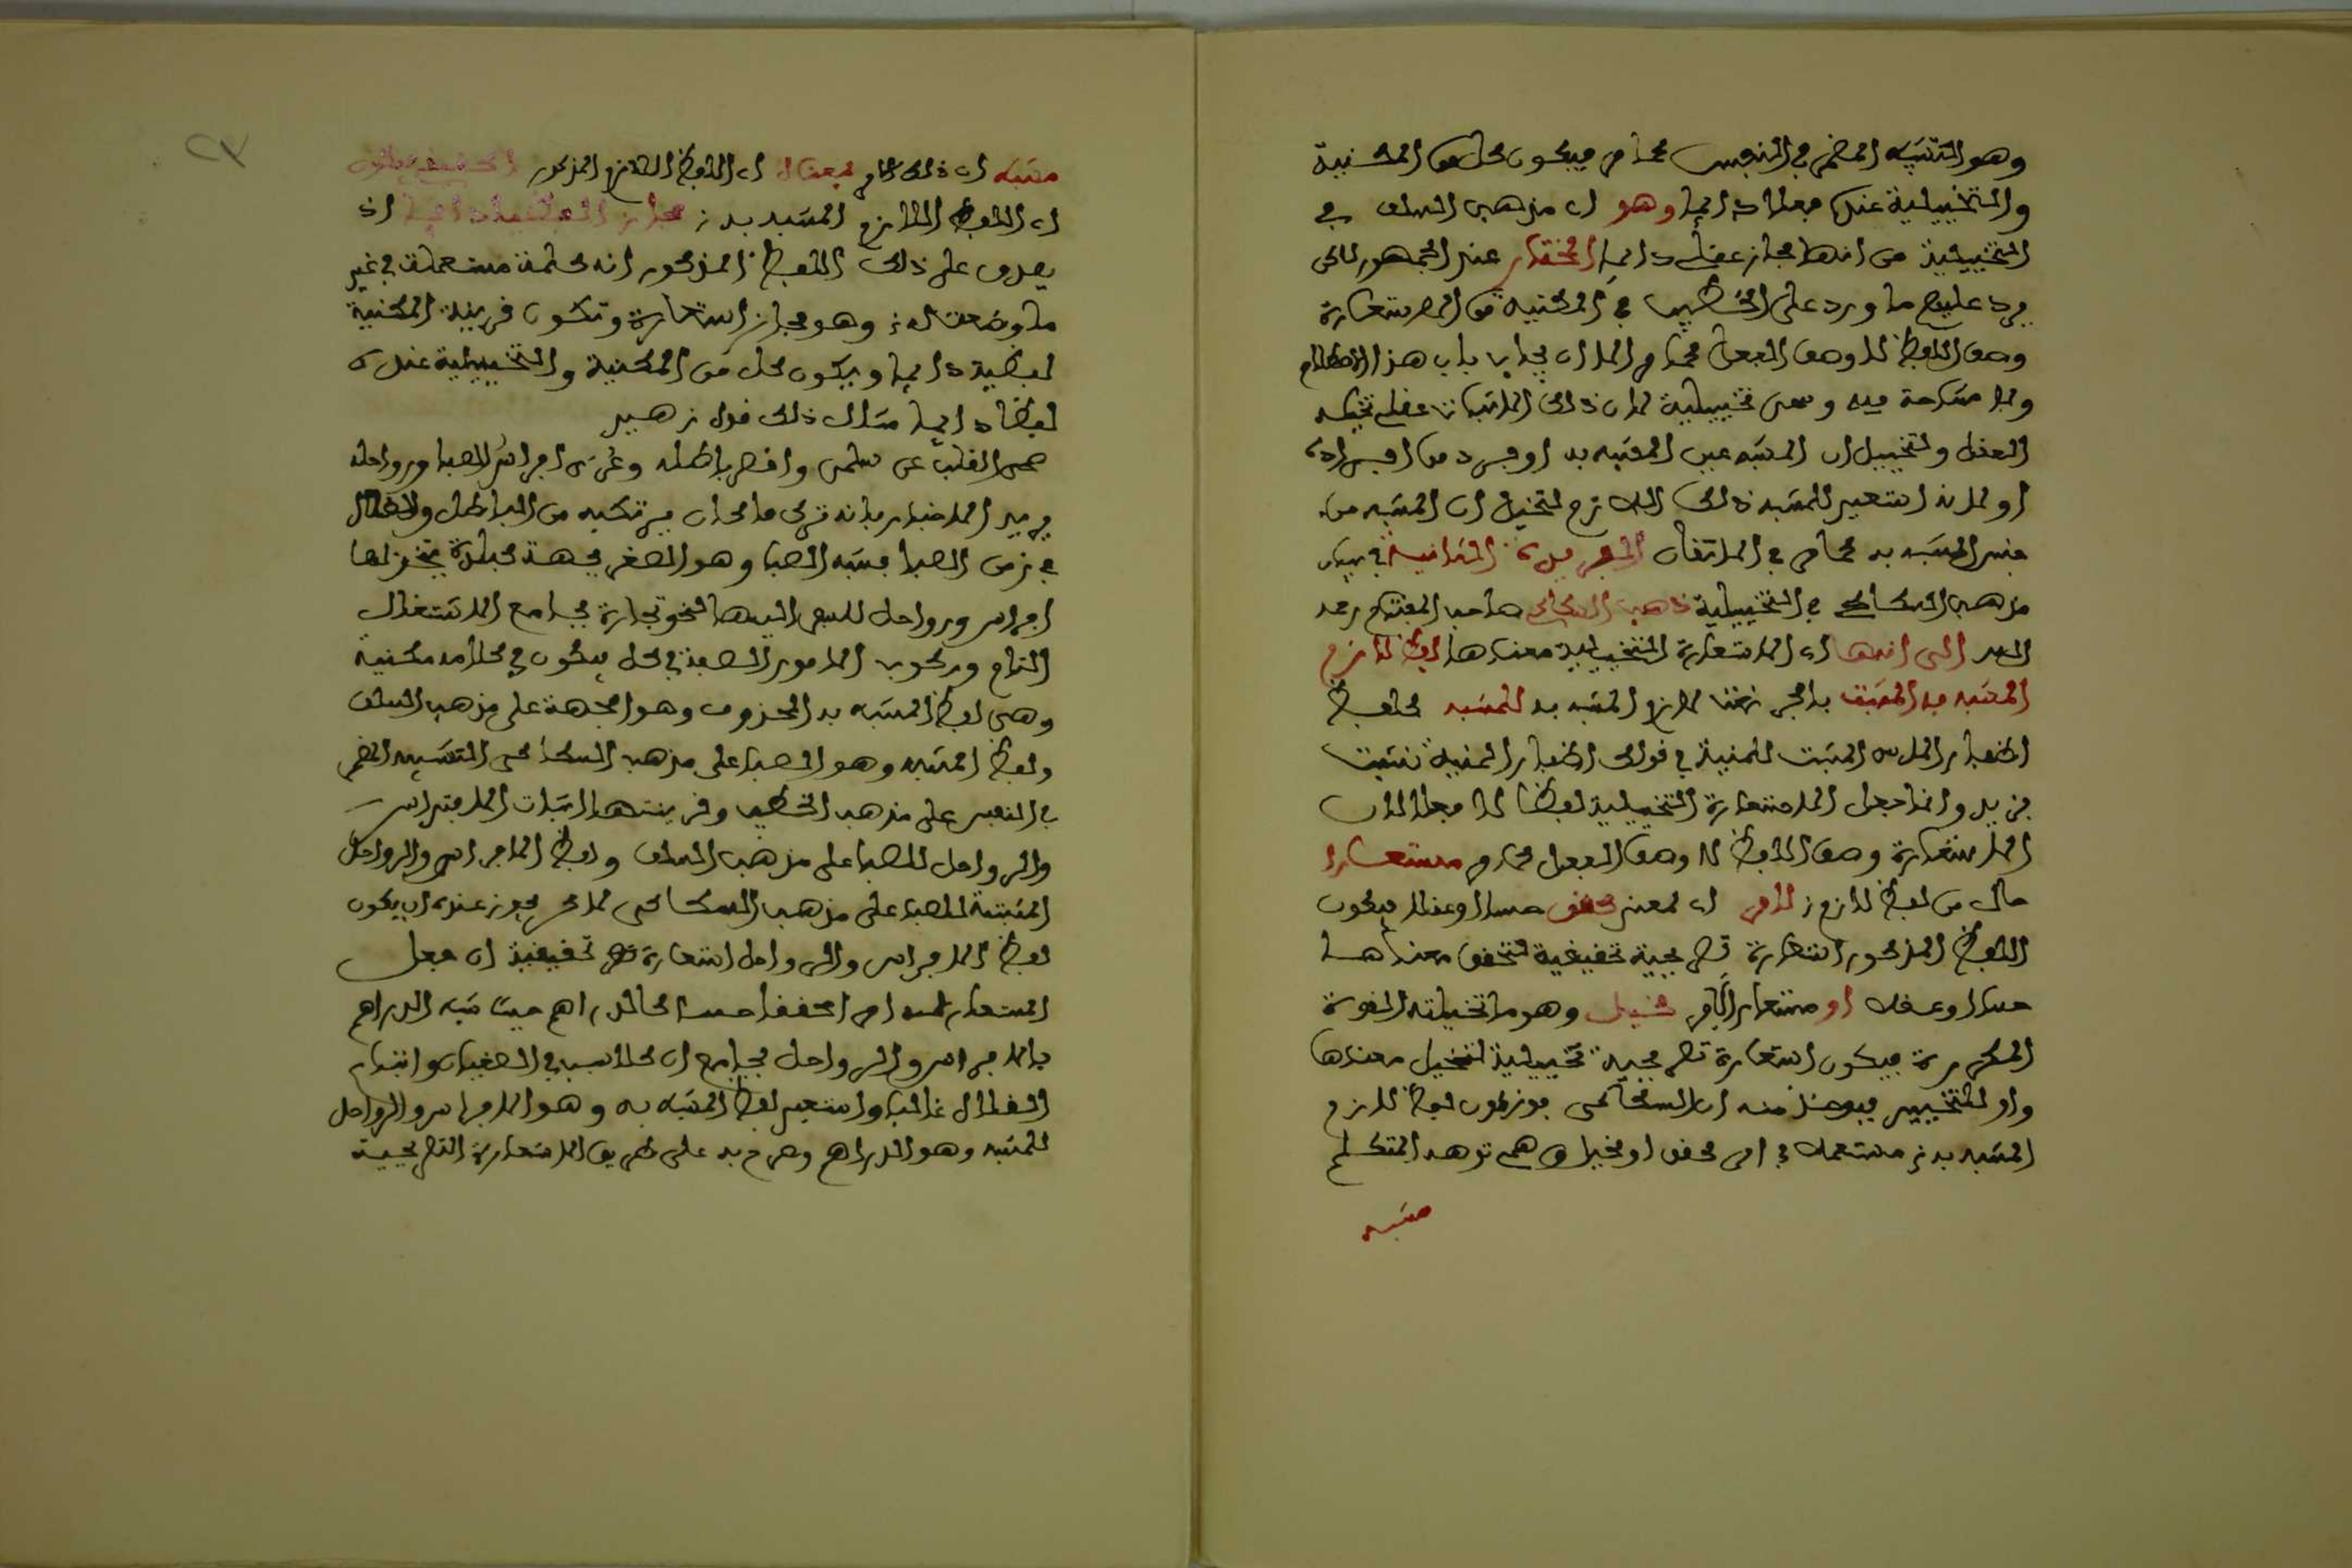 وهو التشبيه المضمر في النفس كما مر فيكون كل من المكنية
والتخييلية عنده فعلا دائما وهو اي مذهب السلف في
التخييلية من انها مجاز عقلي دائما المختار عند الجمهور لكن
يرد عليهم ما ورد على الخطيب في المكنية من ان الاستعارة
وصف اللفظ لا وصف الفعل كما مر الا ان يجاب بان هذا اصطلاح
ولا مشاحة فيه وسمى تخييلية لان ذلك الاثبات عقلي
العقل ولتخييل ان المشبه عين المشبه به او فرد من افراده
او لانه استعير للمشبه ذلك اللازم لتخيل ان المشبه من
جنس المشبه به كما مر في الاتقان الفريدة الثانية في بيان
مذهب السكاكي في التخييلية ذهب السكاكي صاحب المفتاح رحمه
الله الى انها اي الاستعارة التخييلية معناها لفظ لازم
المشبه به المثبت بالجر نعتا للازم المشبه به للمشبه كلفظ
اظفار الاسد المثبت للمنية في قولك اظفار المنية نشبت
بزيد وانما جعل الاستعارة التخييلية لفظا لا فعلا لان
الاستعارة وصف اللفظ لا وصف الفعل كما مر مستعارا
حال من لفظ لازم لامر اي لمعنى محقق حسا او عقلا فيكون
اللفظ المذكور استعارة تصريحية تحقيقية لتحقق معناها
حسا او عقلا او مستعارا لامر مخيل وهو ما تخيلته القوة
المفكرة فيكون استعارة تصريحية تخييلية لتخيل معناها
واو للتخيير فيوخذ منه ان السكاكي يجوز كون لفظ لازم
المشبه به مستعملا في امر محقق او مخيل وهمي توهمه المتكلم
مشبه
مشبه اي ذلك الامر بمعناه اي اللفظ اللازم المذكور الحقيقي فيكون
اي اللفظ اللازم المشبه به مجاز دائما اذ
يصدق على ذلك اللفظ المذكور انه كلمة مستعملة في غير
ما وضعت له وهو مجاز استعارة وتكون قرينة المكنية
لفظية دائما ويكون كل من المكنية والتخييلية عنده
لفظا دائما مثال ذلك قول زهير
صحى القلب عن سلمى واقصر باطله وعري افراس الصبا ورواحله
يريد الاخبار بانه ترك ما كان يرتكبه من الباطل والضلال
في زمن الصبا فشبه الصبا وهو الصغر بجهة يتخذ لها
افراس ورواحل للسعي اليها لنحو تجارة بجامع الاشتغال
التام وركوب الامور الصعبة في كل فيكون في كلامه مكنية
وهي لفظ المشبه به المحذوف وهو الجهة على مذهب السلف
ولفظ المشبه وهو الصبا على مذهب السكاكي التشبيه المضمر
في النفس على مذهب الخطيب وقرينتها اثبات الافراس
والرواحل للصبا على مذهب السلف ولفظ الافراس والرواحل
المثبتة للصبا على مذهب السكاكي لكن يجوز عنده ان يكون
لفظ الافراس والرواحل استعارة تصريحية تحقيقية ان جعل
المستعار له امرا محققا حسا كالدراهم حيث شبه الدراهم
بالافراس والرواحل بجامع ان كلا سبب في اتباع
الضلال غالبا واستعير لفظ المشبه به وهو الافراس والرواحل
للمشبه وهو الدراهم وصرح به على طريق الاستعارة التصريحية